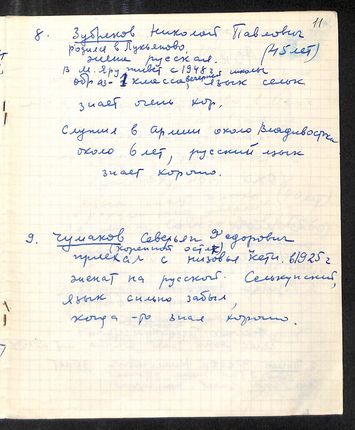 11
8. Зубреков Николай Павлович
родился в Лукьяново. (45 лет)
жена русская.
в М. Яру живёт с 1948 г
обр аз- 1 класса школы, язык сельк
знает очень хор.
Служил в армии около Владивостка
около 6 лет, русский язык
знает хорошо.
9. Чумаков Северьян Федорович
(коренной остяк)
приехал с низовья Кети. в 1925 г
женат на русской. Селькупский,
язык сильно забыл,
когда-то знал хорошо.